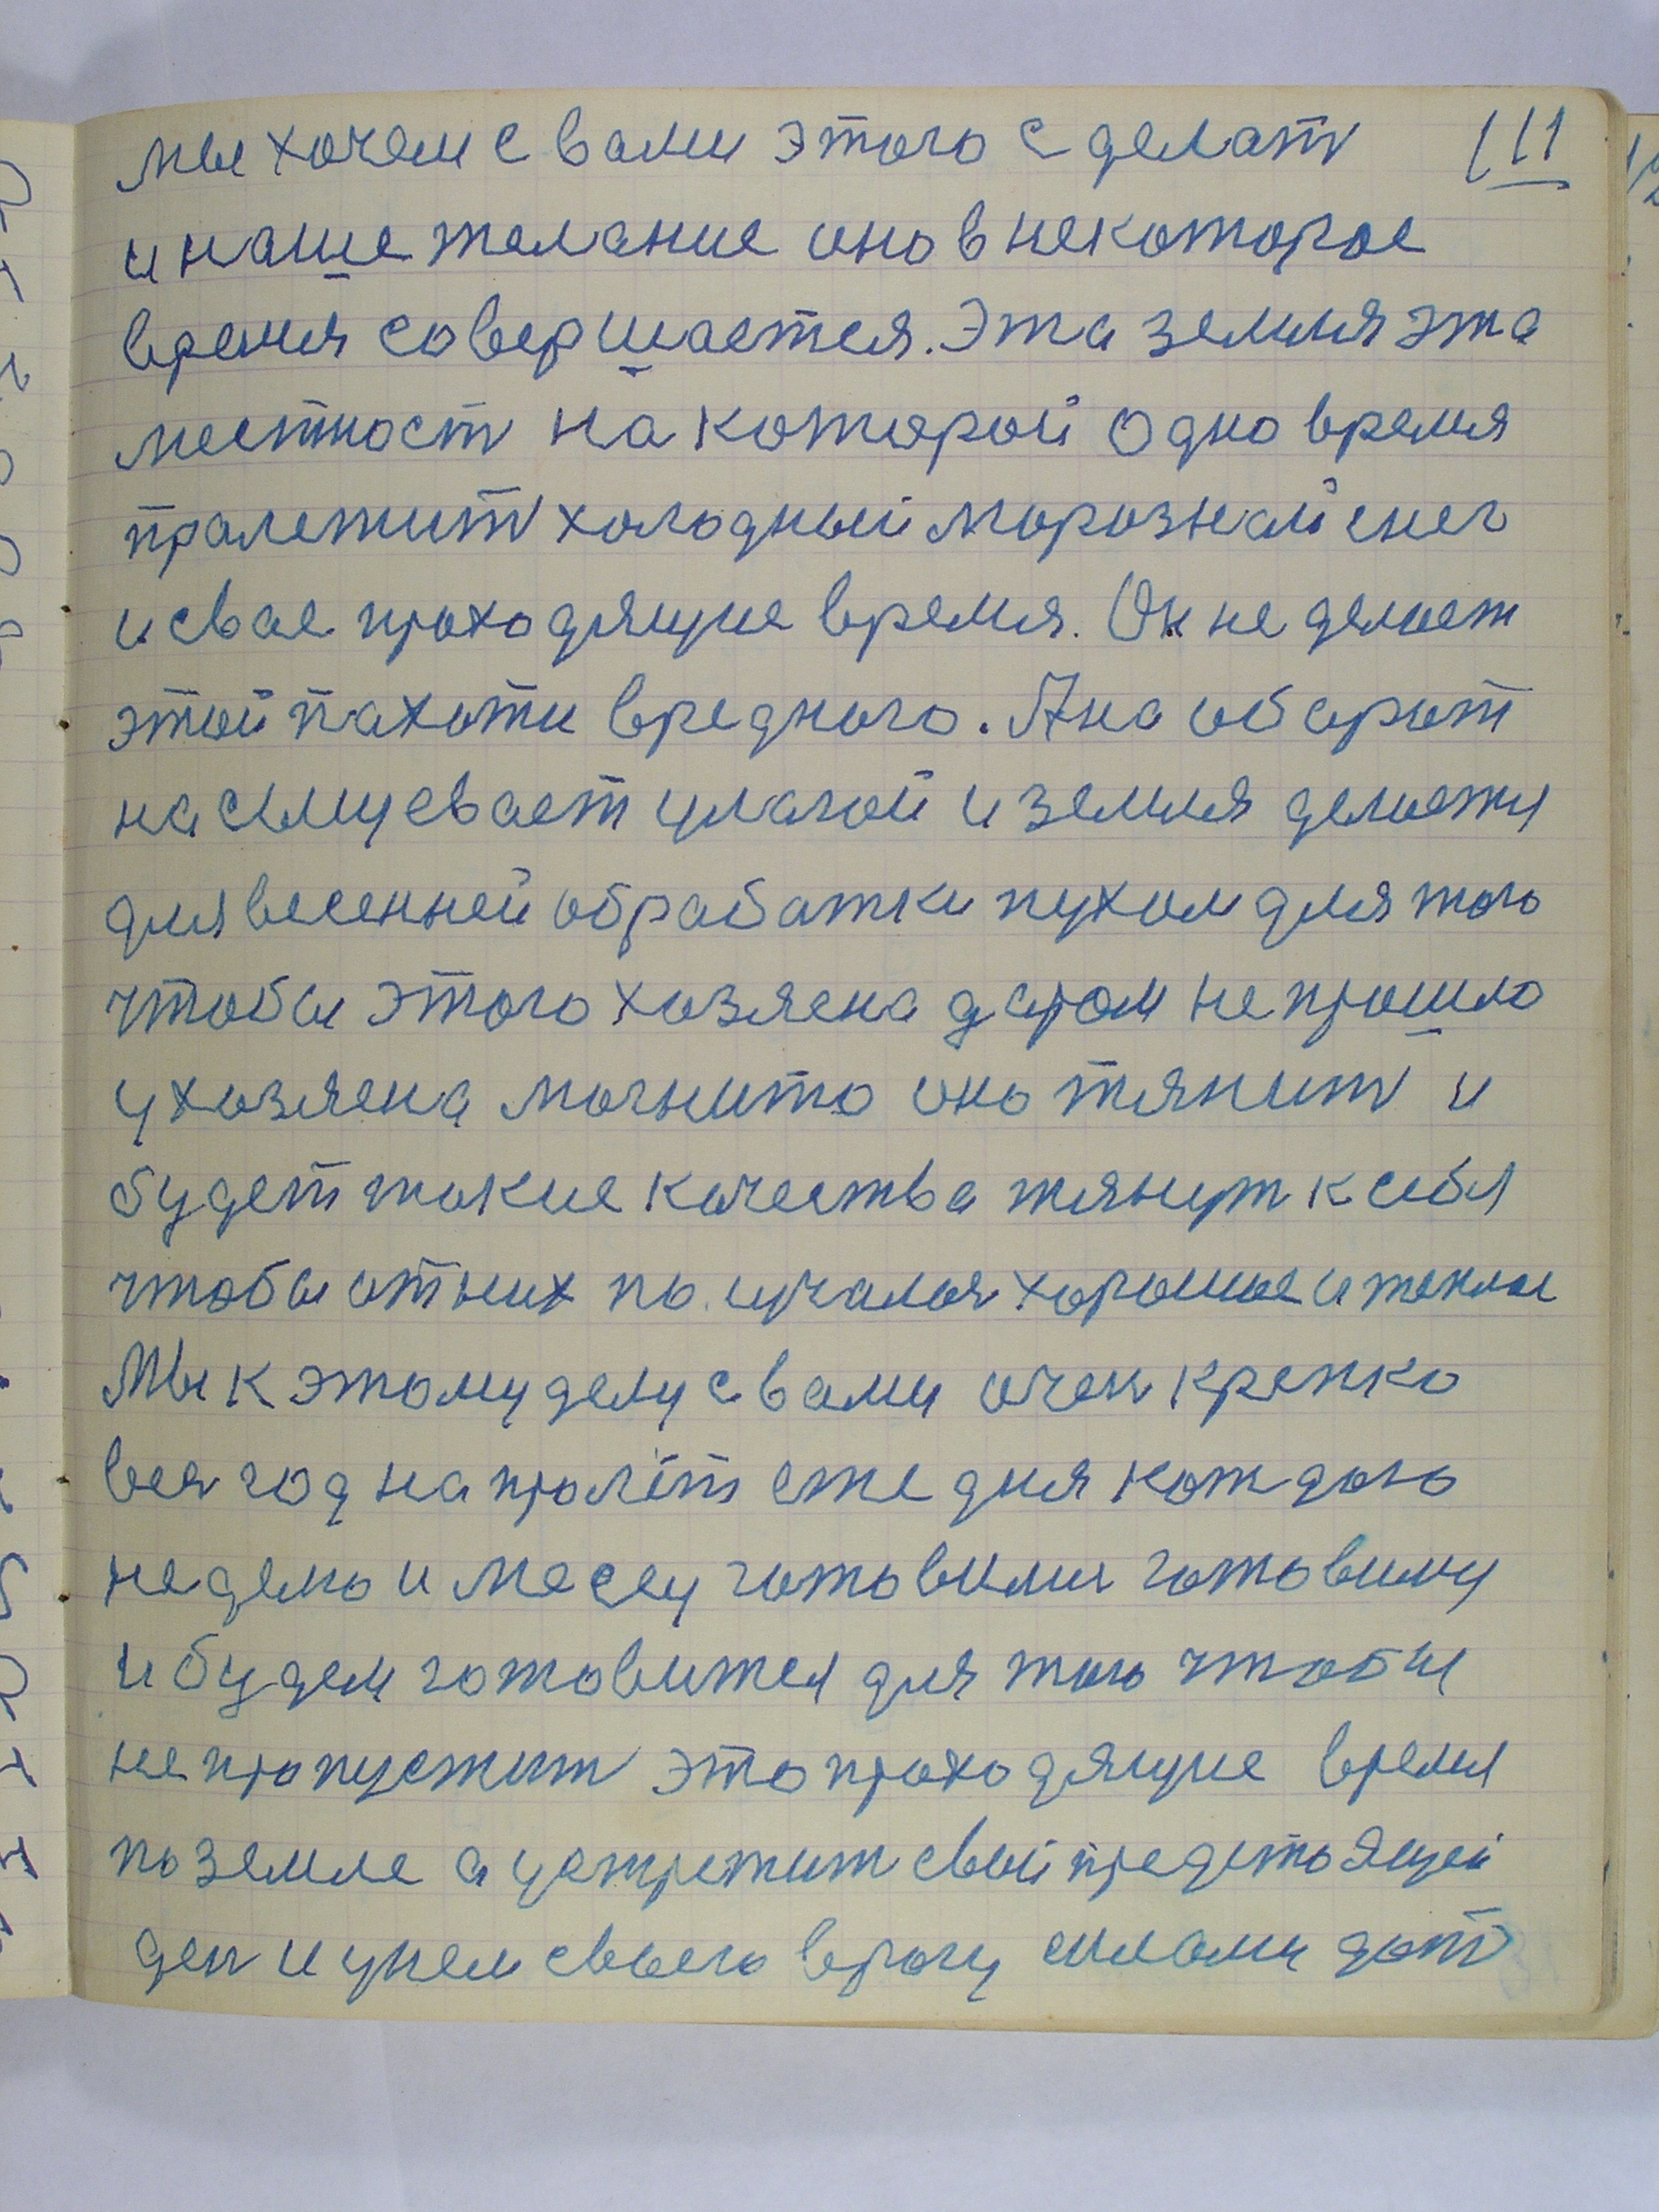 111
мы хочем с вами этого сделат
и наше желание оно в некоторое
время совершается. Эта земля эта
местност на которой одно время
пролежит холодный морозный снег
и свое проходящие время. Он не делает
этой пахоти вредного. А на оборот
насыщевает улагой и земля делает
для весенней обработки пухом для того
чтобы этого хозяена даром не прошло
у хозяена могнито оно тянит и
будет такие качества тянут к себя
чтобы от них получался хорошое и теплое
Мы к этому делу с вами очен крепко
вся год на пролёт еже дня каждою
неделю и месец готовилис готовиму
и будем готовится для того чтобы
не пропустит это проходящие время
по земле а устретит свой предстоящей
ден и умем своего врагу силами дат